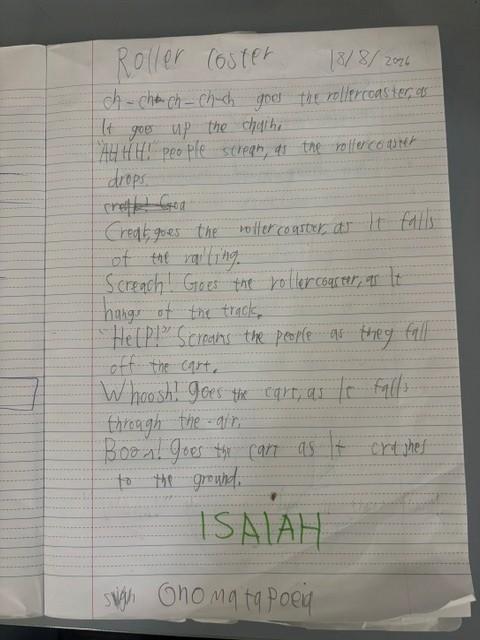 Roller Coster 18/8/2026
ch-ch-ch-ch-ch goes the rollercoaster, as
It goes up the chain.
"AHHH!" people scream, as the rollercoaster
drops.
Creak, goes the rollercoaster, as It falls
of the railing.
Screach! Goes the rollercoaster, as It
hangs of the track.
"Help!" Screams the people as they fall
off the cart.
Whoosh! goes the cart, as It falls
through the air.
Boom! goes the cart as It crashes
to the ground.
ISAIAH
Onomatapoeia